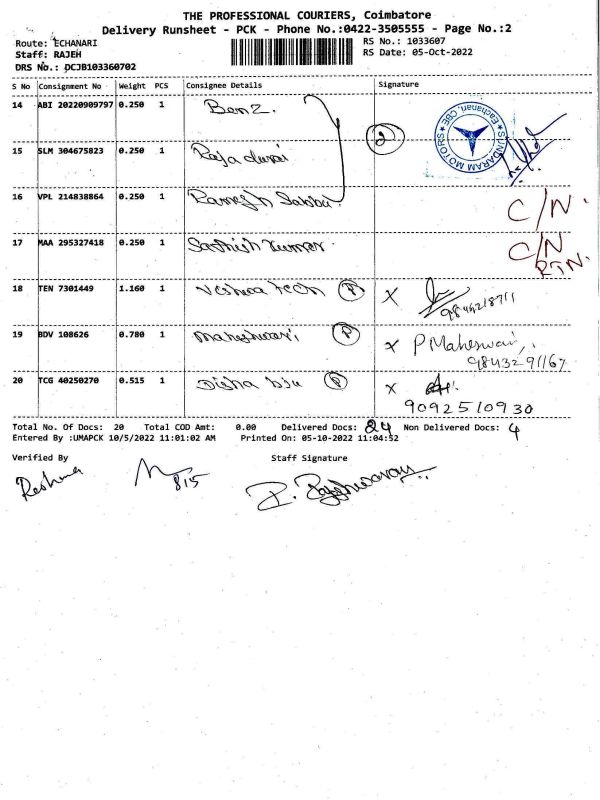 THE PROFESSIONAL COURIERS, Coimbatore
Delivery Runsheet - PCK - Phone No.:0422-3505555 - Page No.:2
Route: ECHANARI
Staff: RAJEH
DRS No.: DCJB103360702
RS No.: 1033607
RS Date: 05-Oct-2022
S No Consignment No Weight PCS Consignee Details Signature
14 ABI 20220909797 0.250 1 Benz.
2
SUNDARAM MOTORS
Eachanari, CBE
15 SLM 304675823 0.250 1 Raja durai
16 VPL 214838864 0.250 1 Ramesh C/N.
17 MAA 295327418 0.250 1 Sathish kumar. C/N
RTN.
18 TEN 7301449 1.160 1 tech P X
19 BDV 108626 0.780 1 maheshwari P X P Maheswari,
98432 91167
20 TCG 40250270 0.515 1 Disha P X
9092510930
Total No. Of Docs: 20 Total COD Amt: 0.00 Delivered Docs: 24 Non Delivered Docs: 4
Entered By :UMAPCK 10/5/2022 11:01:02 AM Printed On: 05-10-2022 11:04:52
Verified By Staff Signature
Reshma 815